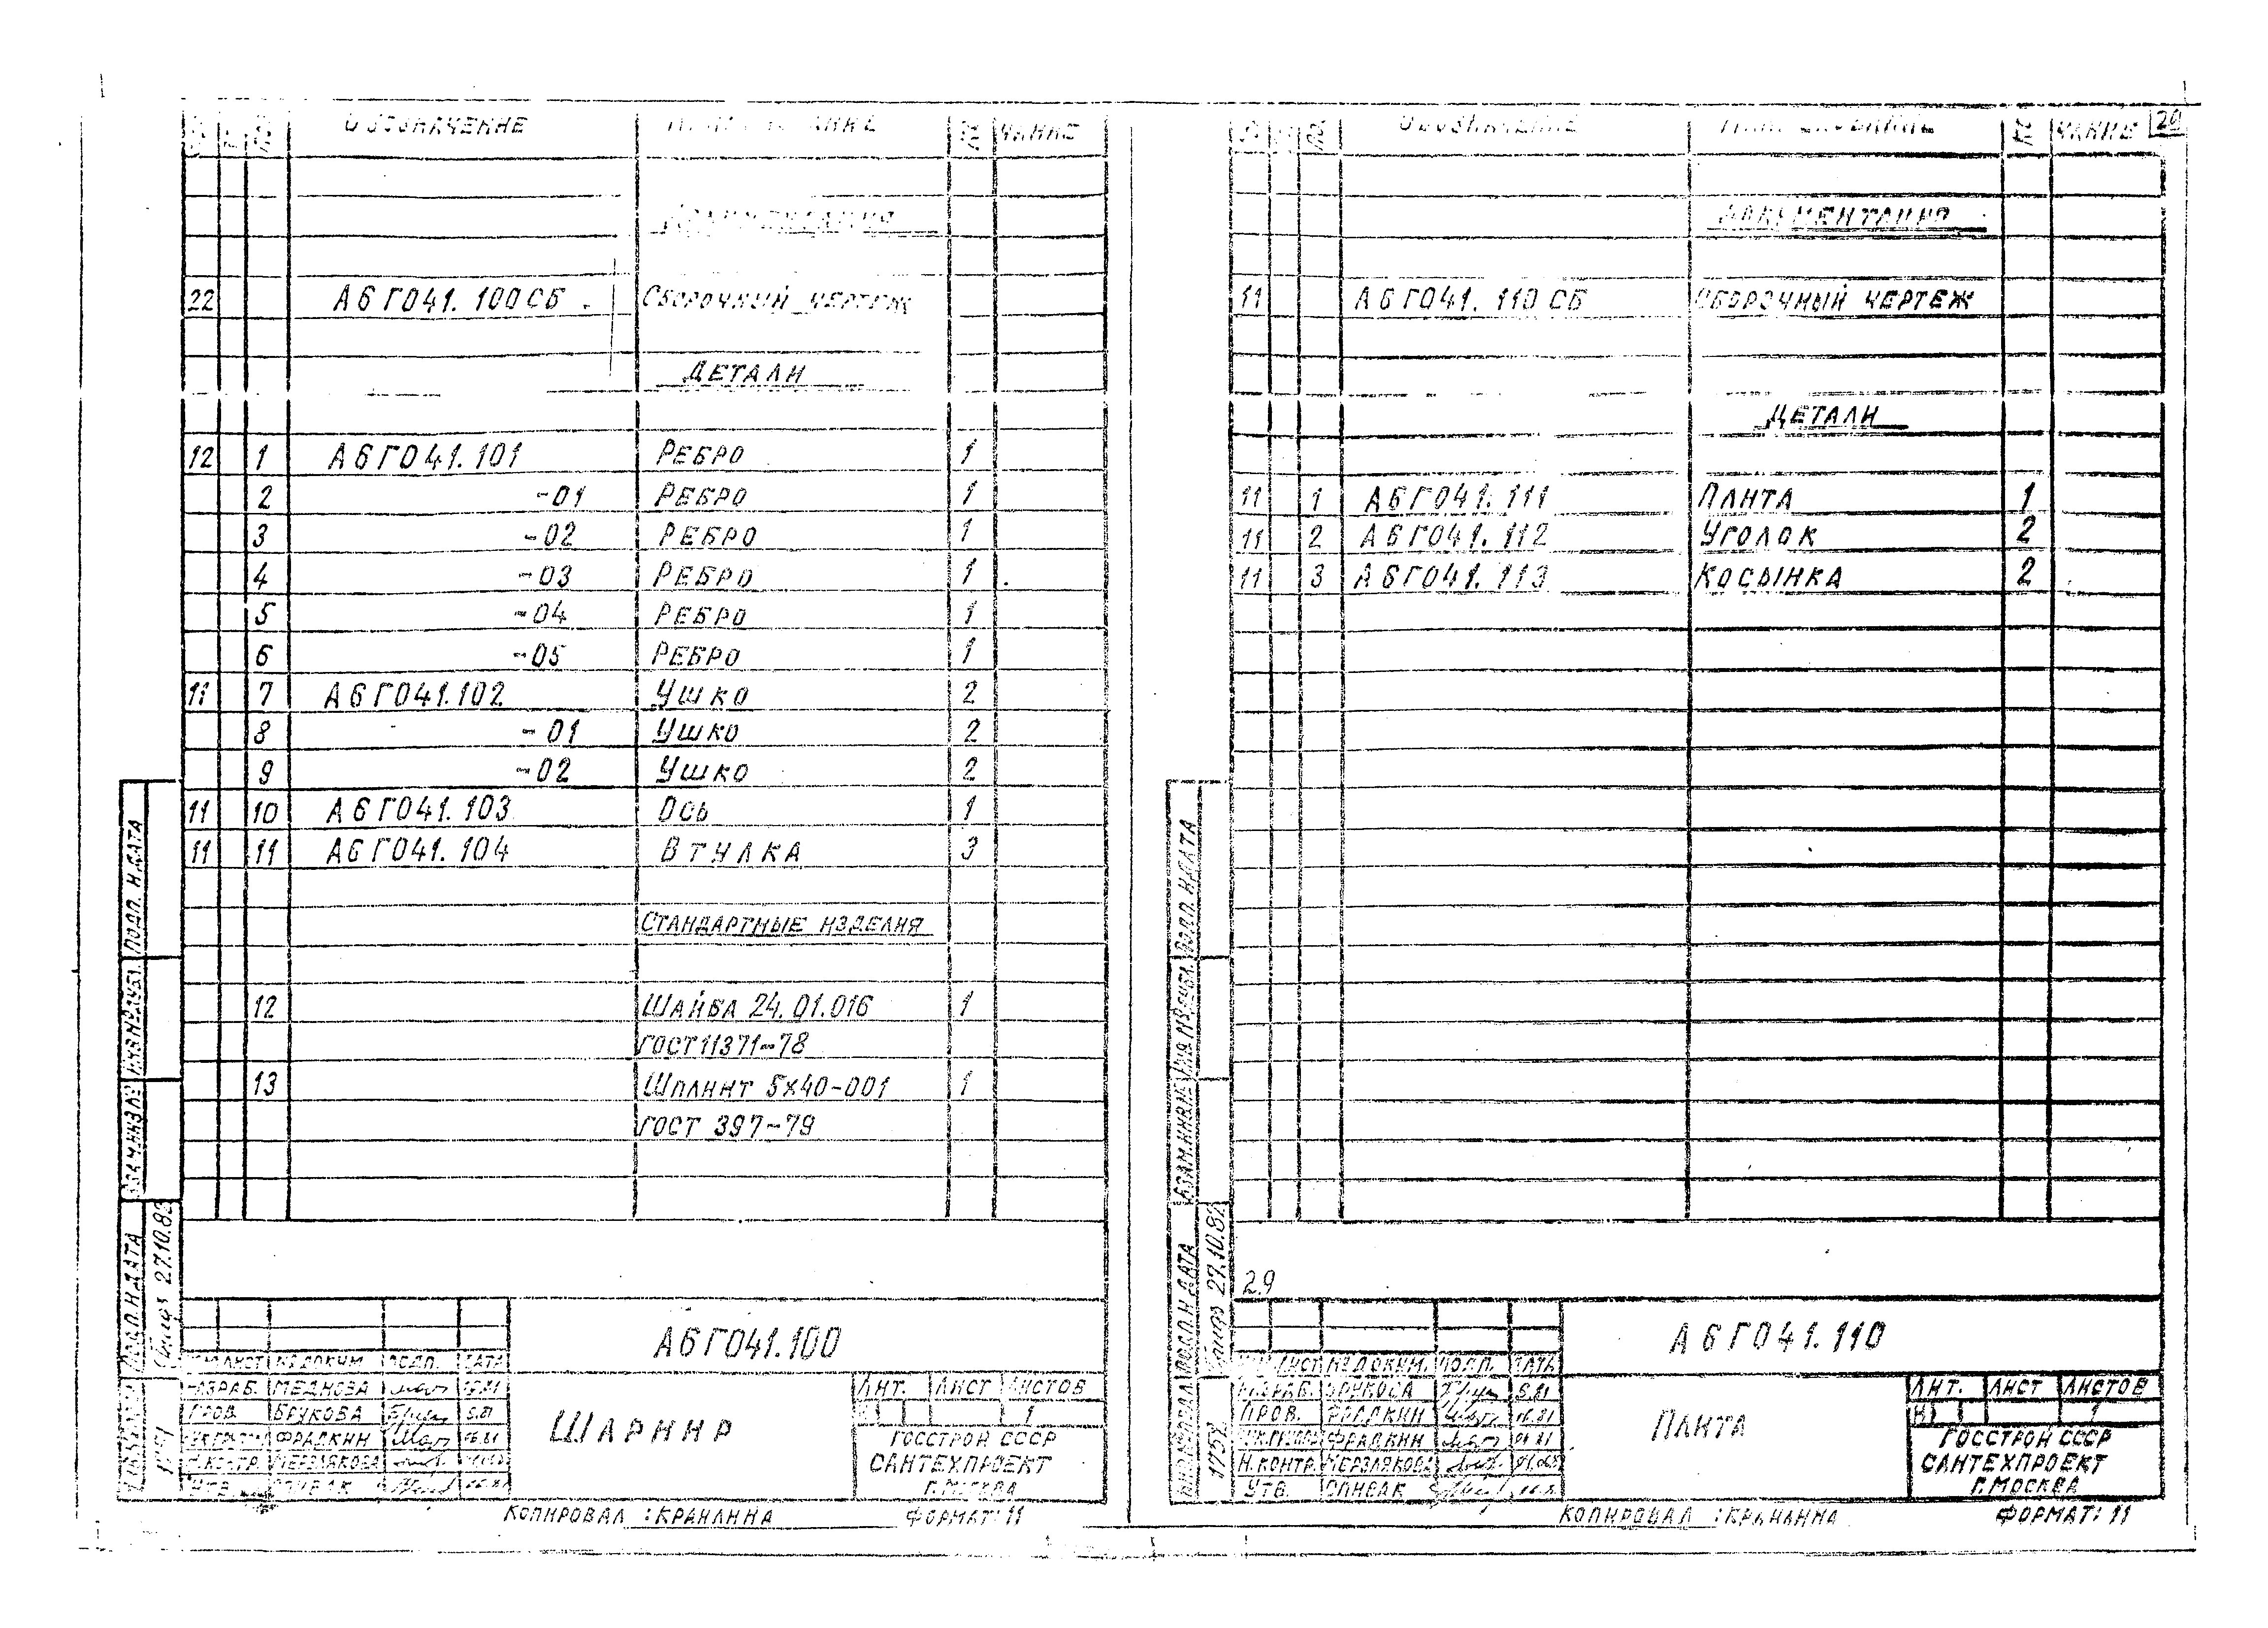 ОБОЗНАЧЕНИЕ НАИМЕНОВАНИЕ ЧАНИЕ
ДОКУМЕНТАЦИЯ
22 А6Г041.100СБ СБОРОЧНЫЙ ЧЕРТЕЖ
ДЕТАЛИ
12 1 А6Г041.101 РЕБРО 1
2 -01 РЕБРО 1
3 -02 РЕБРО 1
4 -03 РЕБРО 1
5 -04 РЕБРО 1
6 -05 РЕБРО 1
11 7 А6Г041.102 УШКО 2
8 -01 УШКО 2
9 -02 УШКО 2
11 10 А6Г041.103 ОСЬ 1
11 11 А6Г041.104 ВТУЛКА 3
СТАНДАРТНЫЕ ИЗДЕЛИЯ
12 ШАЙБА 24.01.016 1
ГОСТ 11371-78
13 ШПЛИНТ 5х40-001 1
ГОСТ 397-79
ПОДП. И ДАТА
ИНВ.№ДУБЛ.
ВЗАМ.ИНВ.№
ПОДП. И ДАТА
27.10.82
А6Г041.100
ЛИСТ №ДОКУМ. ПОДП. ДАТА
РАЗРАБ. МЕДНОВА
ПРОВ. БРУКОВА 5.81
ФРАДКИН 06.81
Н.КОНТР. МЕРЗЛЯКОВА
УТВ. СПИВАК
ШАРНИР
ЛИТ. ЛИСТ ЛИСТОВ
1
ГОССТРОЙ СССР
САНТЕХПРОЕКТ
Г.МОСКВА
КОПИРОВАЛ: КРАИЛИНА ФОРМАТ: 11
20
ОБОЗНАЧЕНИЕ НАИМЕНОВАНИЕ ЧАНИЕ
ДОКУМЕНТАЦИЯ
11 А6Г041.110СБ СБОРОЧНЫЙ ЧЕРТЕЖ
ДЕТАЛИ
11 1 А6Г041.111 ПЛИТА 1
11 2 А6Г041.112 УГОЛОК 2
11 3 А6Г041.113 КОСЫНКА 2
ПОДП. И ДАТА
ИНВ.№ДУБЛ.
ВЗАМ.ИНВ.№
ПОДП. И ДАТА
27.10.82
ИНВ.№ПОДЛ.
2.9
А6Г041.110
ЛИСТ №ДОКУМ. ПОДП. ДАТА
РАЗРАБ. БРУКОВА 5.81
ПРОВ. ФРАДКИН
РУК.ГРУППЫ ФРАДКИН
Н.КОНТР. МЕРЗЛЯКОВА
УТВ. СПИВАК
ПЛИТА
ЛИТ. ЛИСТ ЛИСТОВ
И 1
ГОССТРОЙ СССР
САНТЕХПРОЕКТ
Г.МОСКВА
КОПИРОВАЛ: КРАИЛИНА ФОРМАТ: 11